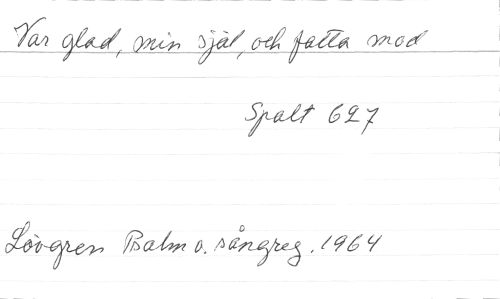 Var glad, min själ, och fatta mod
Spalt 627
Lövgren Psalm o. sångreg. 1964